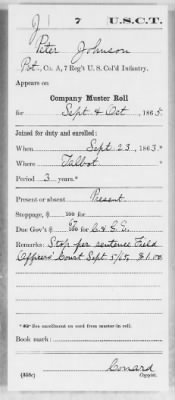 J | 7 | U.S.C.T.
Peter Johnson
Pvt., Co. A, 7 Reg't U. S. Col'd Infantry.
Appears on
Company Muster Roll
for Sept & Oct, 1865.
Joined for duty and enrolled:
When Sept 23, 1863.*
Where Talbot
Period 3 years.*
Present or absent Present
Stoppage, $ 100 for
Due Gov't $ 67/100 for C & G. E.
Remarks: Stop per sentence Field
Officers' Court Sept 5/65, $1.00
* See enrollment on card from muster-in roll.
Book mark:
Conard
(358c) Copyist.